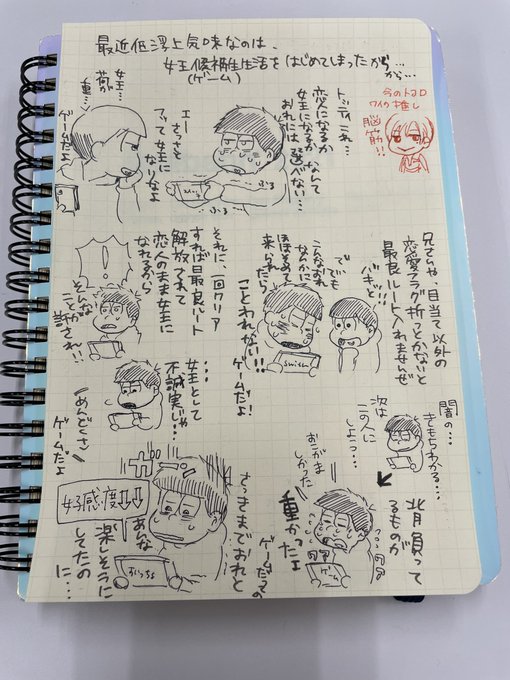 最近低浮上気味なのは、
女王候補生生活をはじめてしまったから…
(ゲーム)
から…
今のトコロ
ワイの推し
脳筋!!
トッティこれ…
恋人になるか
女王になるか なんて
おれには 選べない…
ぶる
ぶる
えー
さっさと
アッて女王に
なりなよ
女王…
荷が
重…
ゲームだよ
兄さんや、目当て以外の
恋愛フラグ折っとかないと
最良ルート入れませんぜ
バキッと!!
でっ、でも
こんなおれ
なんかに
ほほそめて
来られたら
ことわれない!!
ゲームだよ!
switch
それに、一回クリア
すれば最良ルート
解放されて
恋人のまま女王に
なれるから
!
そんな
ことが許され!!
闇の…
きもちわかる…
次は
この人に
しよっ…
女王として
不誠実じゃ…
めんどくさ
ゲームだよ
背負って
るものが
重かったよ
おこがま
しかった
ゲームだっての
ゲーム
さっきまでおれと
あんな
楽しそうに
してたの
に…
ガーン
好感度↓↓